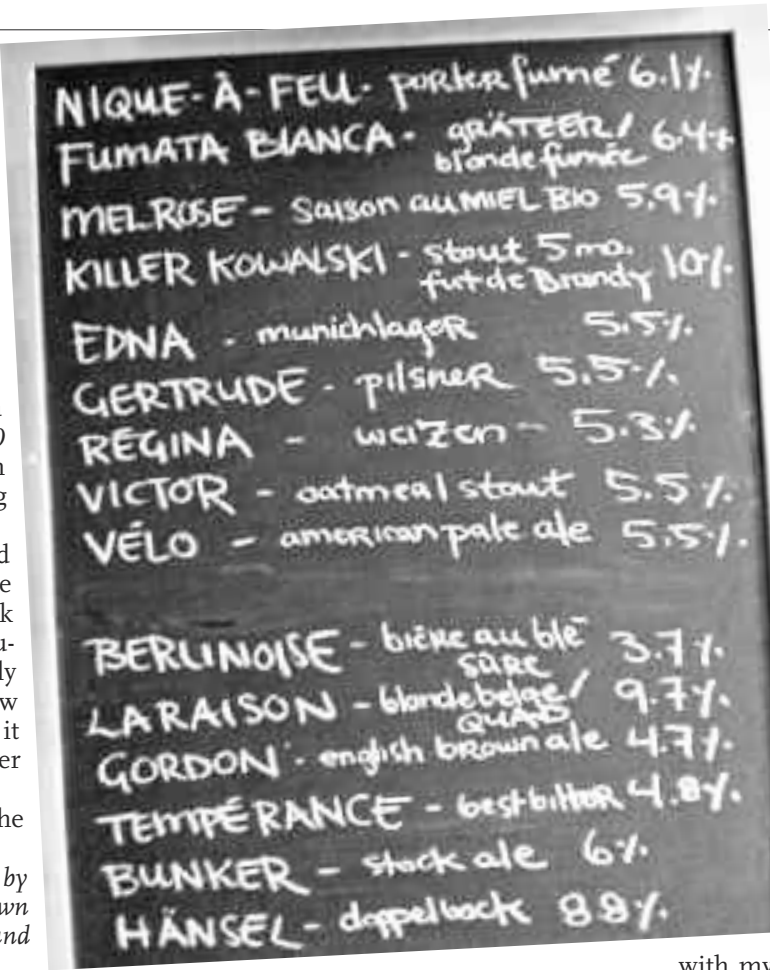 NIQUE-À-FEU- porter fumé 6.1%
FUMATA BIANCA - GRÄTZER/ 6.4%
blonde fumée
MELROSE - Saison au MIEL BIO 5.9%
KILLER KOWALSKI - stout 5 mo. 10%
fut de Brandy
EDNA - munich lager 5.5%
GERTRUDE - pilsner 5.5%
RÉGINA - weizen - 5.3%
VICTOR - oatmeal stout 5.5%
VÉLO - american pale ale 5.5%
BERLINOISE - bière au blé 3.7%
SÛRE
LA RAISON - blonde belge/ 9.7%
QUAD
GORDON - english brown ale 4.7%
TEMPÉRANCE - best bitter 4.8%
BUNKER - stock ale 6%
HÄNSEL - doppelbock 8.8%
by
and
with my